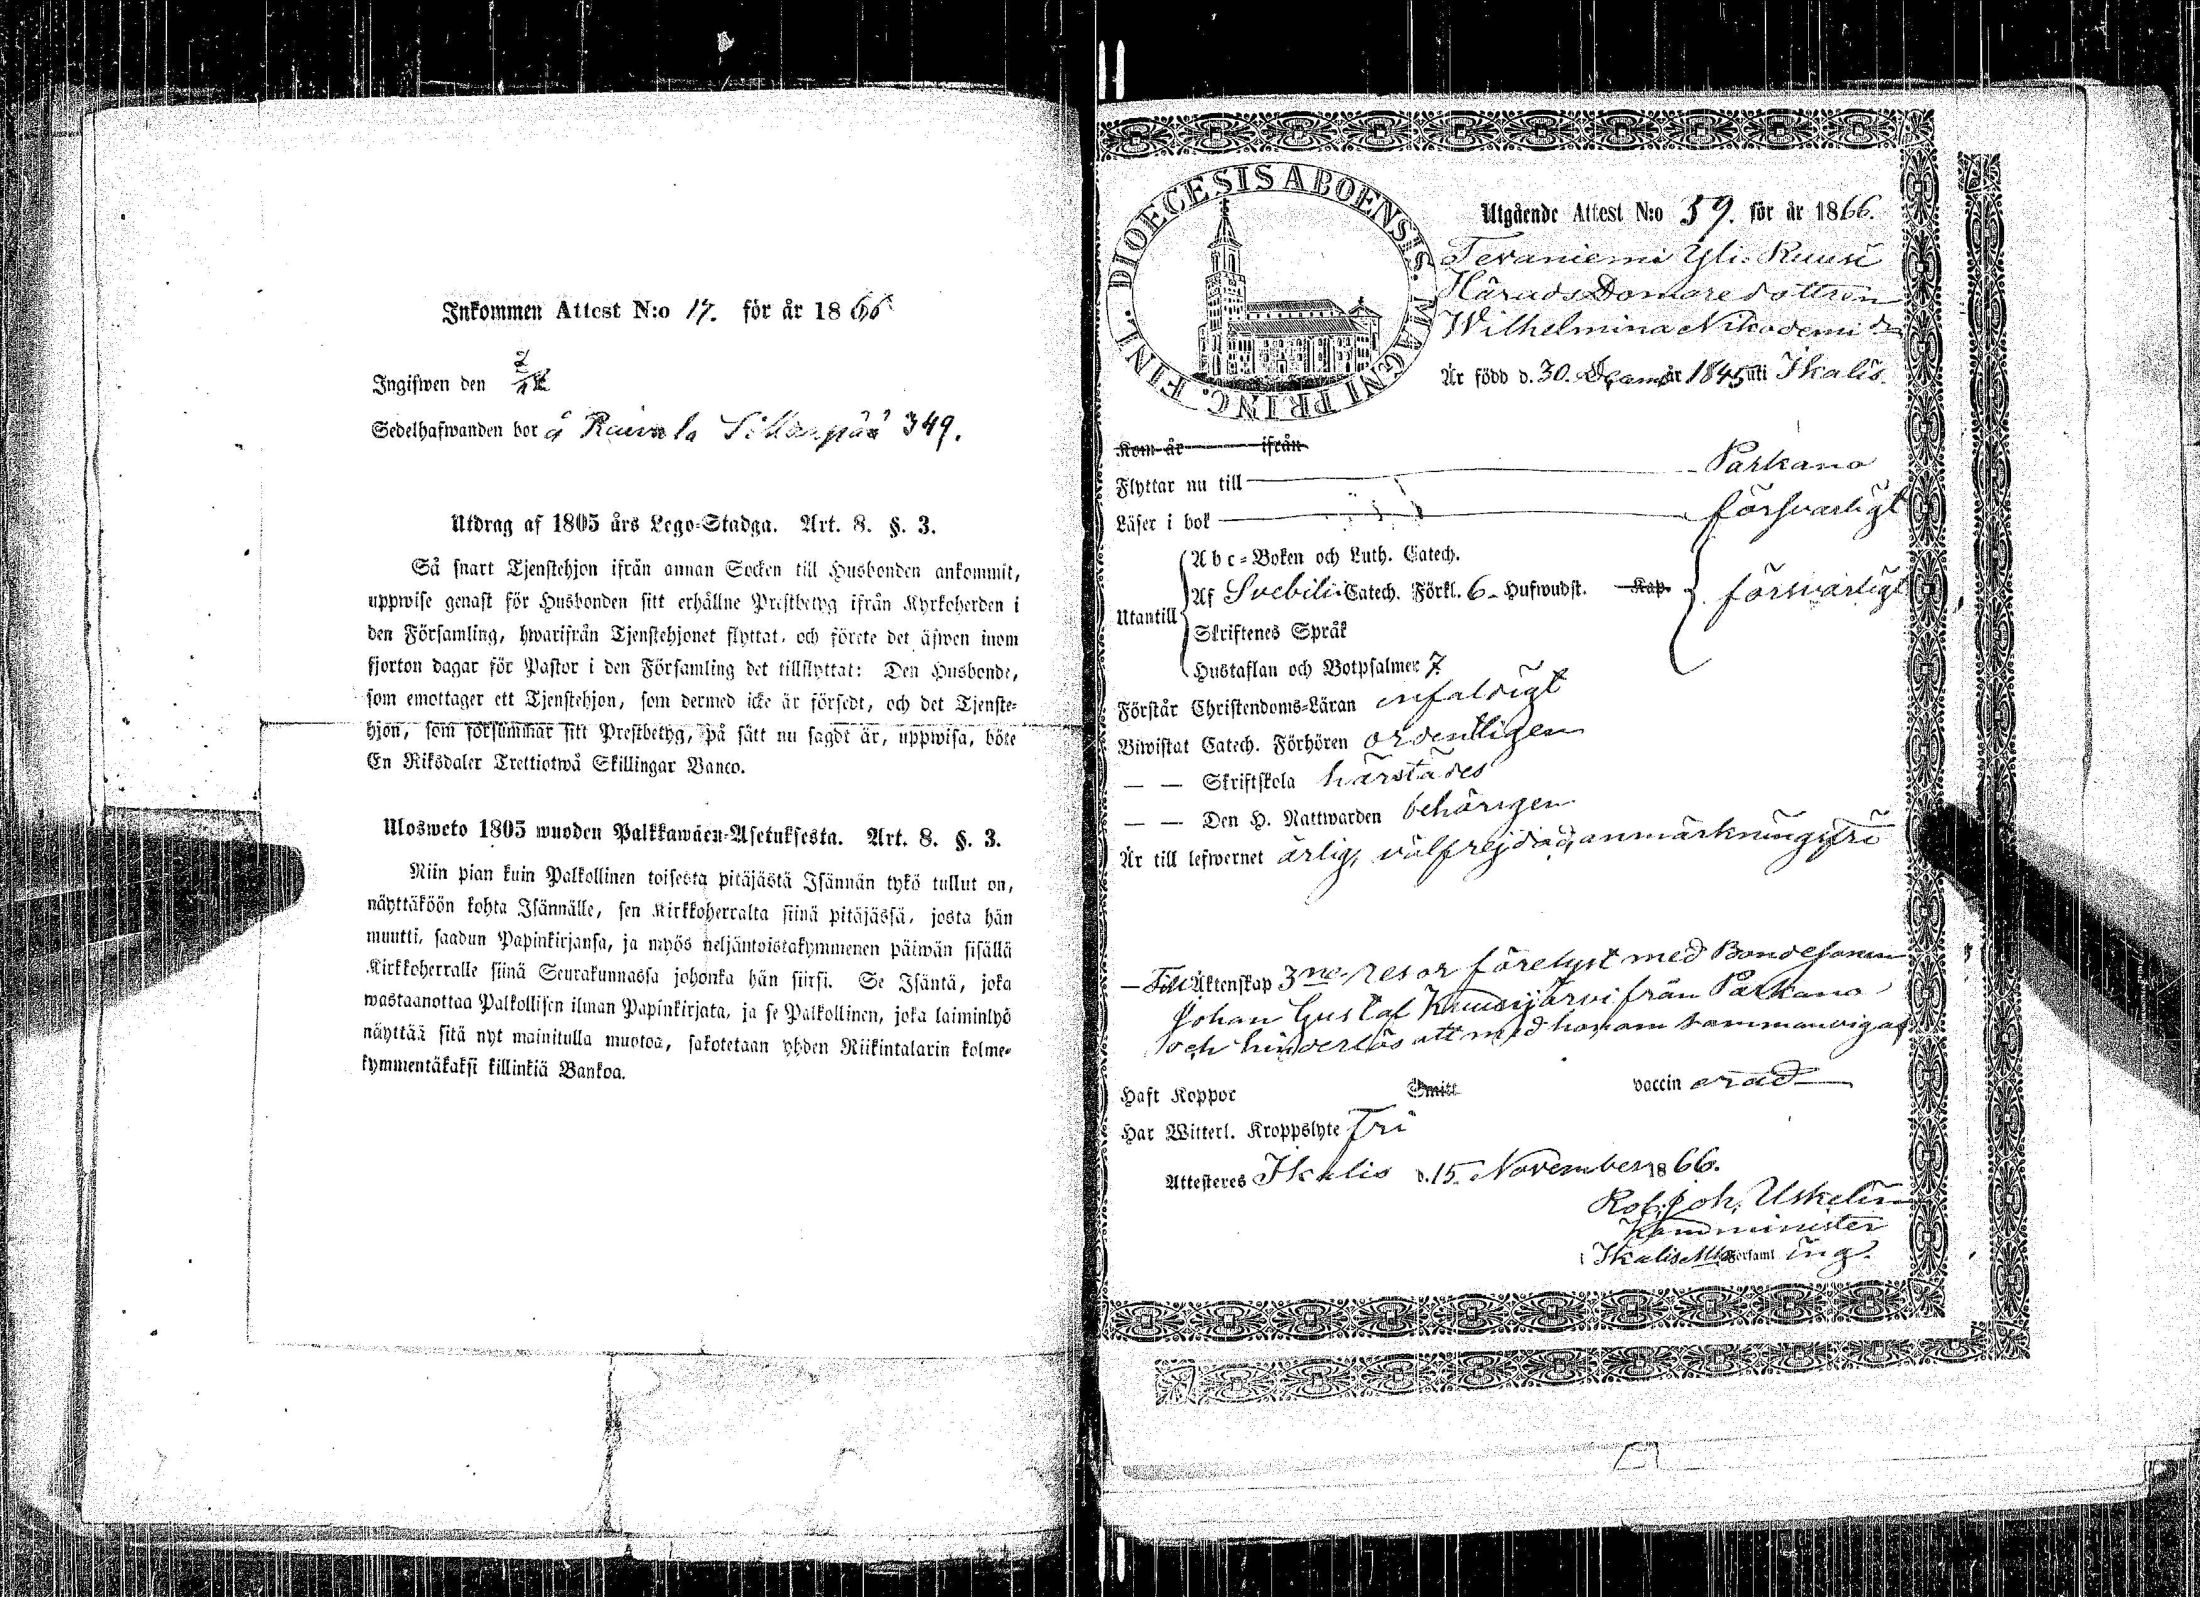 Inkommen Attest N:o 17. för år 1866
Ingifwen den 2/12
Sedelhafwanden bor å Raivala Sillanpää 349.
Utdrag af 1805 års Lego-Stadga. Art. 8. §. 3.
Så snart Tjenstehjon ifrån annan Socken till Husbonden ankommit,
uppwise genast för Husbonden sitt erhållne Prestbetyg ifrån Kyrkoherden i
den Församling, hwarifrån Tjenstehjonet flyttat, och förete det äfwen inom
fjorton dagar för Pastor i den Församling det tillflyttat: Den Husbonde,
som emottager ett Tjenstehjon, som dermed icke är försedt, och det Tjenste-
hjon, som försummar sitt Prestbetyg, på sätt nu sagdt är, uppwisa, böte
En Riksdaler Trettiotwå Skillingar Banco.
Ulosweto 1805 wuoden Palkkawäen-Asetuksesta. Art. 8. §. 3.
Niin pian kuin Palkollinen toisesta pitäjästä Isännän tykö tullut on,
näyttäköön kohta Isännälle, sen Kirkkoherralta siinä pitäjässä, josta hän
muutti, saadun Papinkirjansa, ja myös neljäntoistakymmenen päiwän sisällä
Kirkkoherralle siinä Seurakunnassa johonka hän siirsi. Se Isäntä, joka
wastaanottaa Palkollisen ilman Papinkirjata, ja se Palkollinen, joka laiminlyö
näyttää sitä nyt mainitulla muotoa, sakotetaan yhden Riikintalarin kolme-
kymmentäkaksi killinkiä Bankoa.
DIOECESIS ABOENSIS. MAGNI PRINC. FINL.
Utgående Attest N:o 59. för år 1866.
Tevaniemi Yli-Ruusi
Härads Domaredottren
Wilhelmina Nikodemi dr
Är född d. 30. Decemb år 1845 uti Ikalis.
Kom år ifrån
Flyttar nu till Parkano
Läser i bok försvarligt
Utantill
A b c-Boken och Luth. Catech.
Af Svebilii Catech. Förkl. 6 Hufwudst. Kap. försvarligt
Skriftenes Språk
Hustaflan och Botpsalmer 7.
Förstår Christendoms-Läran enfaldigt
Biwistat Catech. Förhören ordentligen
— — Skriftskola härstädes
— — Den H. Nattwarden behörigen
Är till lefwernet ärlig, välfrejdad, anmärkningsfri
Till Äktenskap 3ne resor förelyst med Bondesonen
Johan Gustaf Kuusijärvi från Parkano
och hinderlös att med honom sammanvigas
Haft Koppor Smitt vaccinerad
Har Witterl. Kroppslyte Fri
Attesteres Ikalis d. 15. November 1866.
Rob. Joh. Uskelin
i Ikalis M församling.